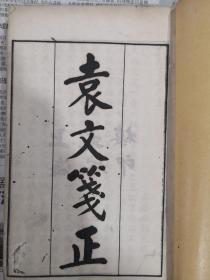 袁文箋正